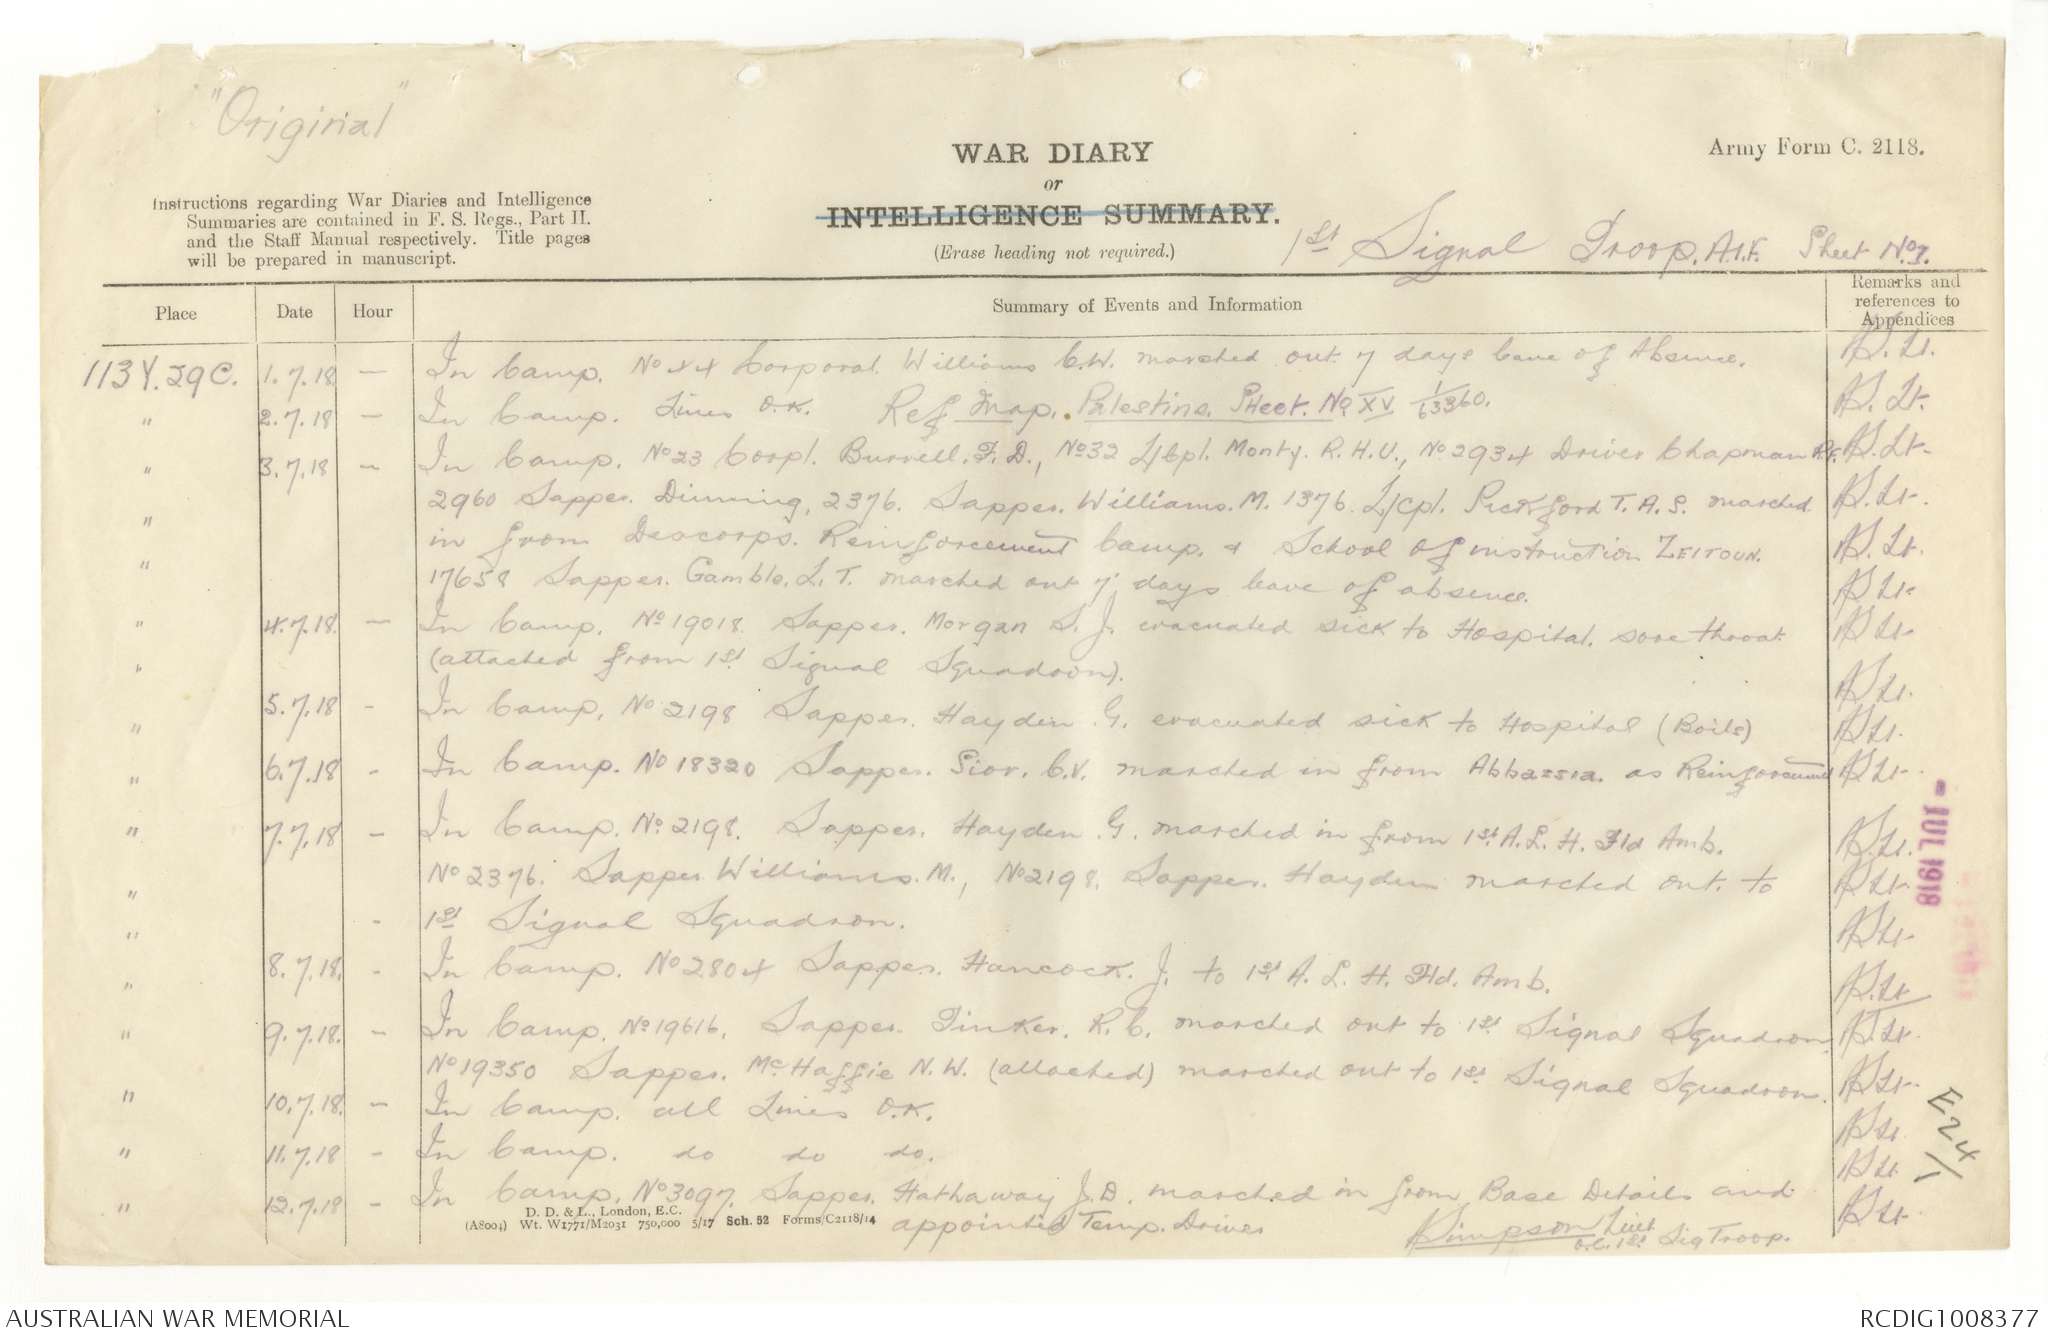 "Original"
WAR DIARY
or
INTELLIGENCE SUMMARY.
(Erase heading not required.)
Army Form C. 2118.
Instructions regarding War Diaries and Intelligence
Summaries are contained in F. S. Regs., Part II.
and the Staff Manual respectively. Title pages
will be prepared in manuscript.
1st Signal Troop. A.I.F. Sheet No. 1.
Place Date Hour Summary of Events and Information Remarks and references to Appendices
113Y.29C. 1.7.18 — In Camp. No 44 Corporal Williams C.W. marched out 7 days leave of Absence. Lt.
" 2.7.18 — In Camp. Lines O.K. Ref Map. Palestine. Sheet. No XV 1/63360. Lt.
" 3.7.18 — In Camp. No 23 Corpl. Burrell. F. D., No 32 L/Cpl. Monty. R. H. V., No 2934 Driver Chapman Lt.
" 2960 Sapper. Dinning, 2376. Sapper. Williams. M. 1376. L/Cpl. Pickford T. A. S. marched Lt.
" in from Descorps. Reinforcement Camp. & School of instruction ZEITOUN. Lt.
" 17658 Sapper. Gamble. L. T. marched out 7 days leave of absence. Lt.
" 4.7.18. — In Camp. No 19018. Sapper. Morgan S. J. evacuated sick to Hospital. sore throat Lt.
" (attached from 1st Signal Squadron). Lt.
" 5.7.18 - In Camp. No 2198 Sapper. Hayden. G. evacuated sick to Hospital (Boils) Lt.
" 6.7.18 - In Camp. No 18320 Sapper. Sior. C.V. marched in from Abbassia. as Reinforcement Lt.
" 7.7.18 — In Camp. No. 2198. Sapper. Hayden. G. marched in from 1st A. L. H. Fld Amb. Lt.
" No 2376. Sapper Williams. M., No 2198. Sapper. Hayden marched out. to Lt.
" - 1st Signal Squadron. Lt.
" 8.7.18. - In Camp. No 2804 Sapper. Hancock. J. to 1st A. L. H. Fld. Amb. Lt.
" 9.7.18. — In Camp. No 19616. Sapper. Tinker. R. C. marched out to 1st Signal Squadron. Lt.
No 19350 Sapper. McHaffie N. W. (attached) marched out to 1st Signal Squadron. Lt.
" 10.7.18. — In Camp. all Lines O.K. Lt.
" 11.7.18 - In Camp. do do do. Lt.
" 12.7.18 - In Camp. No 3097. Sapper. Hathaway J. D. marched in from Base Details and Lt.
appointed Temp. Driver
Simpson Lieut
O.C. 1st Sig Troop.
D. D. & L., London, E.C.
(A8004) Wt. W1771/M2031 750,000 5/17 Sch. 52 Forms/C2118/14
- JUL 1918
E24/1
AUSTRALIAN WAR MEMORIAL
RCDIG1008377